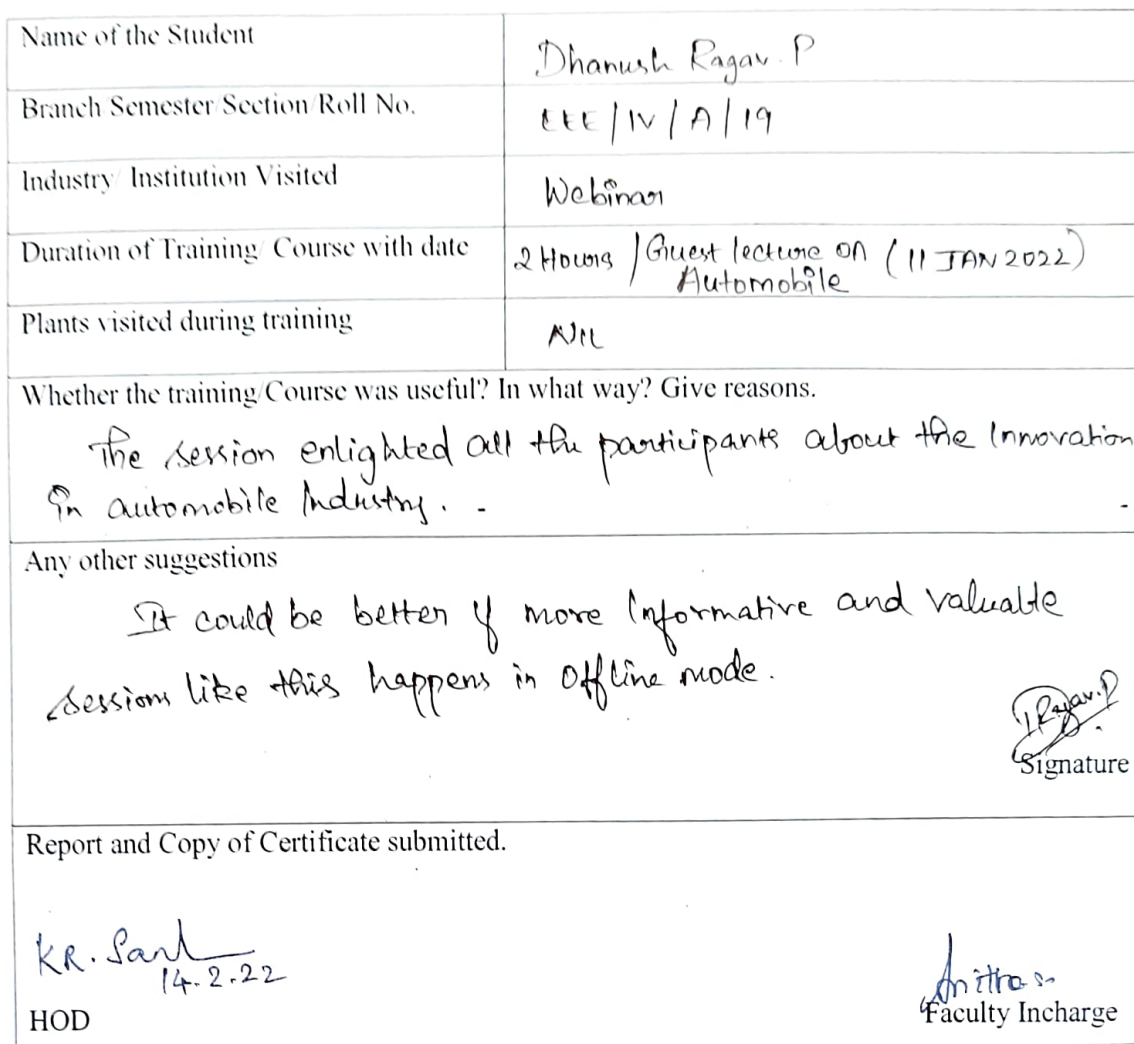 Name of the Student
Dhanush Ragav. P
Branch Semester Section Roll No.
EEE/IV/A/19
Industry Institution Visited
Webinar
Duration of Training Course with date
2 Hours / Guest lecture on (11 JAN 2022)
Automobile
Plants visited during training
NIL
Whether the training Course was useful? In what way? Give reasons.
The session enlighted all the participants about the Innovation
in automobile Industry.
Any other suggestions
It could be better if more Informative and valuable
sessions like this happens in Offline mode.
Ragav.P
Signature
Report and Copy of Certificate submitted.
KR.
14.2.22
HOD
Faculty Incharge